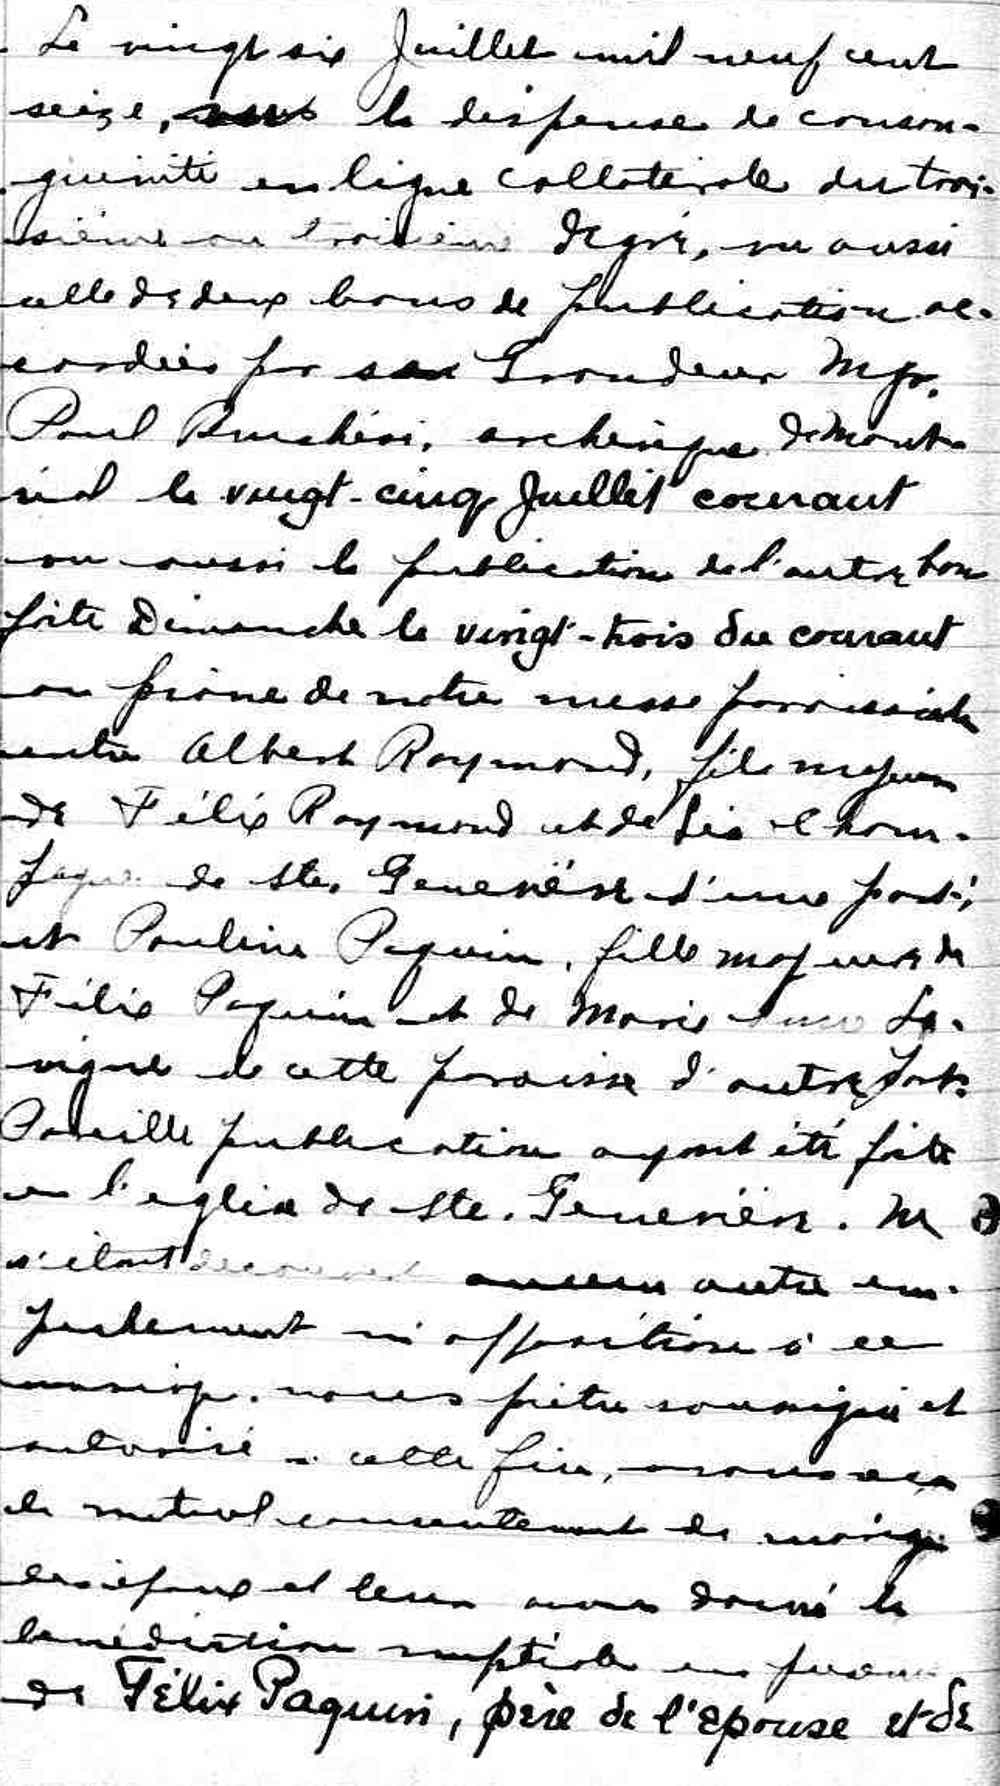 Le vingt six Juillet mil neuf cent
seize, vu la dispense de consan-
guinité en ligne collatérale du troi-
sième au troisième dégré, vu aussi
celle de deux bans de publication ac-
cordées par sa Grandeur Mgr.
Paul Bruchési, archevêque de Mont-
réal le vingt-cinq Juillet courant
vu aussi la publication de l'autre ban
faite Dimanche le vingt-trois du courant
au prône de notre messe paroissiale
entre Albert Raymond, fils majeur
de Félix Raymond et de
de Ste. Geneviève d'une part,
et Pauline Paquin, fille majeure de
Félix Paquin et de Marie La-
vigne de cette paroisse d'autre part.
Pareille publication ayant été faite
en l'eglise de Ste. Geneviève. Ne
s'étant découvert aucun autre em-
pêchement ni opposition à ce
mariage. nous prêtre soussigné et
autorisé à cette fin, avons reçu
le mutuel consentement de mariage
des époux et leur avons donné la
bénédiction nuptiale en présence
de Félix Paquin, père de l'epouse et de